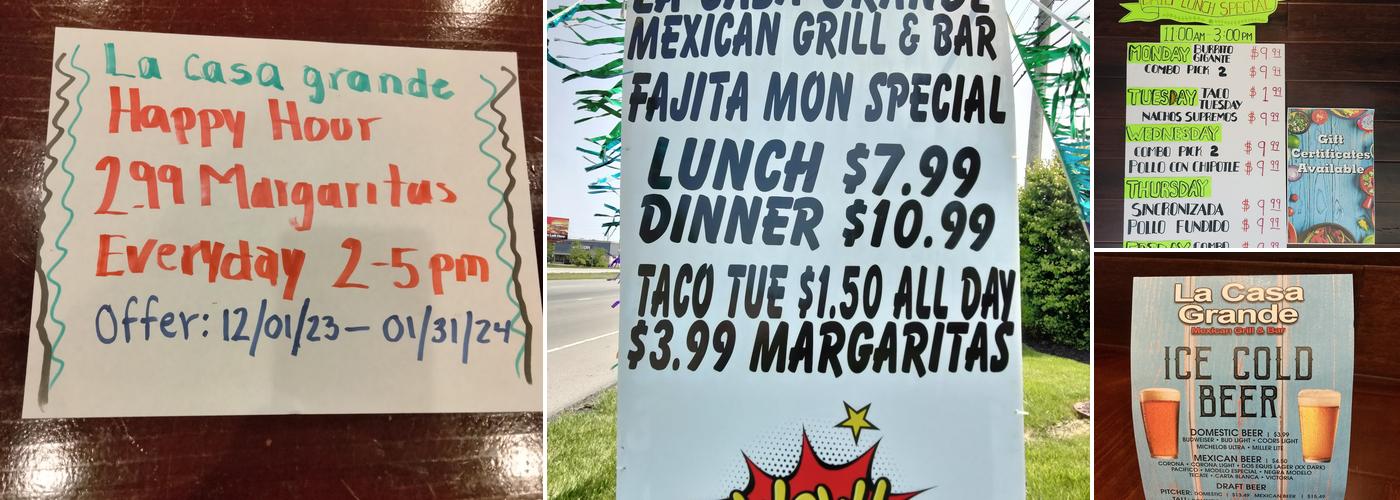 La Casa grande
Happy Hour
2.99 Margaritas
Everyday 2-5pm
Offer: 12/01/23 – 01/31/24
LA CASA GRANDE
MEXICAN GRILL & BAR
FAJITA MON SPECIAL
LUNCH $7.99
DINNER $10.99
TACO TUE $1.50 ALL DAY
$3.99 MARGARITAS
WOW!!
LUNCH SPECIAL
11:00AM - 3:00PM
MONDAY BURRITO GIGANTE $9.99
COMBO PICK 2 $9.99
TUESDAY TACO TUESDAY $1.99
NACHOS SUPREMOS $9.99
WEDNESDAY
COMBO PICK 2 $9.99
POLLO CON CHIPOTLE $9.99
THURSDAY
SINCRONIZADA $9.99
POLLO FUNDIDO $9.99
FRIDAY COMBO
Gift
Certificates
Available
La Casa
Grande
Mexican Grill & Bar
ICE COLD
BEER
DOMESTIC BEER | $3.99
BUDWEISER • BUD LIGHT • COORS LIGHT
MICHELOB ULTRA • MILLER LITE
MEXICAN BEER | $4.50
CORONA • CORONA LIGHT • DOS EQUIS LAGER (XX DARK)
PACIFICO • MODELO ESPECIAL • NEGRA MODELO
TECATE • CARTA BLANCA • VICTORIA
DRAFT BEER
PITCHER: DOMESTIC | $13.49 MEXICAN BEER | $15.49